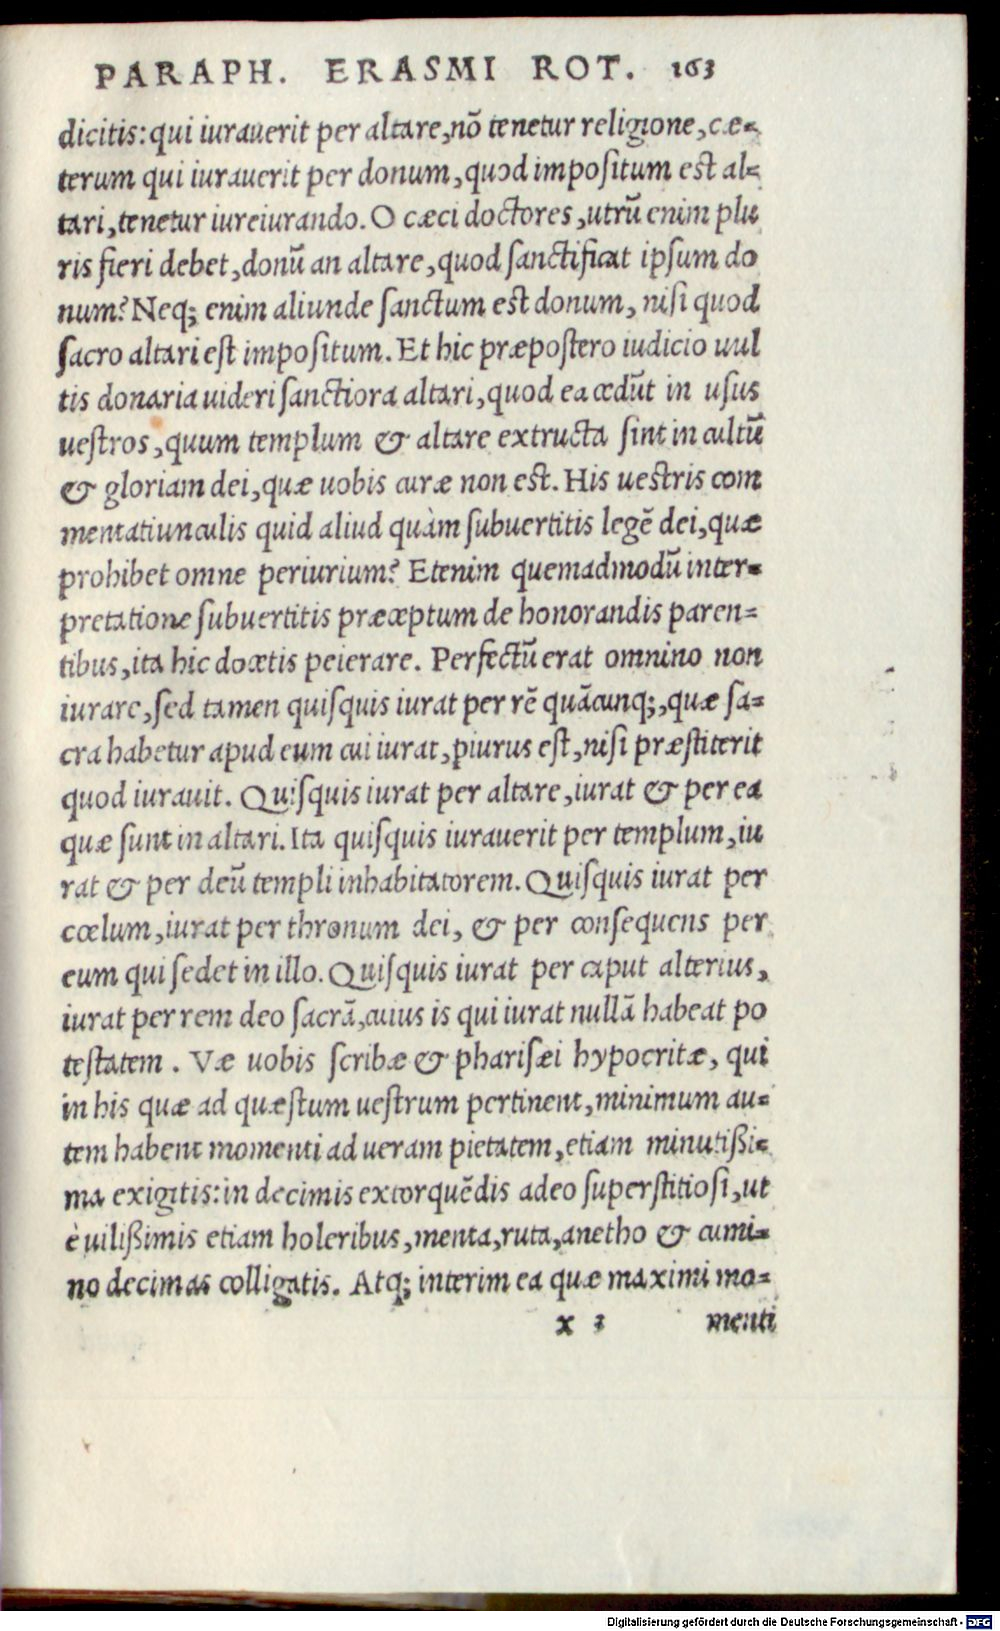 PARAPH. ERASMI ROT. 163
dicitis: qui iurauerit per altare, nõ tenetur religione, cæ-
terum qui iurauerit per donum, quod impositum est al-
tari, tenetur iureiurando. O cæci doctores, utrũ enim plu
ris fieri debet, donũ an altare, quod sanctificat ipsum do
num? Neq; enim aliunde sanctum est donum, nisi quod
sacro altari est impositum. Et hic præpostero iudicio uul
tis donaria uideri sanctiora altari, quod ea cedũt in usus
uestros, quum templum & altare extructa sint in cultũ
& gloriam dei, quæ uobis curæ non est. His uestris com
mentatiunculis quid aliud quàm subuertitis legẽ dei, quæ
prohibet omne periurium? Etenim quemadmodũ inter-
pretatione subuertitis præceptum de honorandis paren-
tibus, ita hic docetis peierare. Perfectũ erat omnino non
iurare, sed tamen quisquis iurat per rẽ quãcunq;, quæ sa-
cra habetur apud eum cui iurat, piurus est, nisi præstiterit
quod iurauit. Quisquis iurat per altare, iurat & per ea
quæ sunt in altari. Ita quisquis iurauerit per templum, iu
rat & per deũ templi inhabitatorem. Quisquis iurat per
cœlum, iurat per thronum dei, & per consequens per
eum qui sedet in illo. Quisquis iurat per caput alterius,
iurat per rem deo sacrã, cuius is qui iurat nullã habeat po
testatem. Væ uobis scribæ & pharisæi hypocritæ, qui
in his quæ ad quæstum uestrum pertinent, minimum au-
tem habent momenti ad ueram pietatem, etiam minutißi-
ma exigitis: in decimis extorquẽdis adeo superstitiosi, ut
è uilißimis etiam holeribus, menta, ruta, anetho & cumi-
no decimas colligatis. Atq; interim ea quæ maximi mo-
x 3 menti
Digitalisierung gefördert durch die Deutsche Forschungsgemeinschaft - DFG